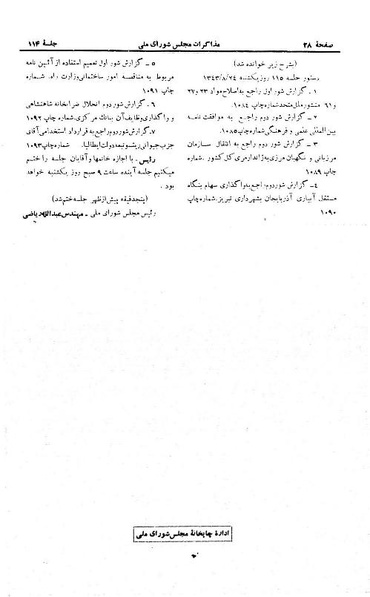 صفحهٔ ۲۸
مذاکرات مجلس شورای ملی
جلسهٔ ۱۱۴
(بشرح زیر خوانده شد)
دستور جلسه ۱۱۵ روز یکشنبه ۱۳۴۳/۸/۲۴
۱ـ گزارش شور اول راجع به اصلاح مواد ۲۳ و ۲۷
و ۶۱ منشور ملل متحد شماره چاپ ۱۰۸۴
۲ـ گزارش شور دوم راجع به موافقت نامه
بین المللی علمی و فرهنگی شماره چاپ ۱۰۸۵
۳ـ گزارش شور دوم راجع به انتقال سازمان
مرزبانی و نگهبان مرزی به ژاندارمری کل کشور. شماره
چاپ ۱۰۸۹
۴ـ گزارش شور دوم راجع به واگذاری سهام بنگاه
مستقل آبیاری آذربایجان بشهرداری تبریز. شماره چاپ
۱۰۹۰
۵ـ گزارش شور اول تعمیم استفاده از آئین نامه
مربوط به مناقصه امور ساختمانی وزارت راه. شماره
چاپ ۱۰۹۱
۶ـ گزارش شور دوم انحلال ضرابخانه شاهنشاهی
و واگذاری وظایف آن ببانک مرکزی. شماره چاپ ۱۰۹۲
۷ـ گزارش شور دوم راجع به قرارداد استخدامی آقای
دولت ایطالیا. شماره چاپ ۱۰۹۳
رئیس ـ با اجازه خانمها و آقایان جلسه را ختم
میکنیم جلسه آینده ساعت ۹ صبح روز یکشنبه خواهد
بود.
(پنجدقیقه پیش از ظهر جلسه ختم شد)
رئیس مجلس شورای ملی ـ مهندس عبدالله ریاضی
ادارهٔ چاپخانهٔ مجلس شورای ملی